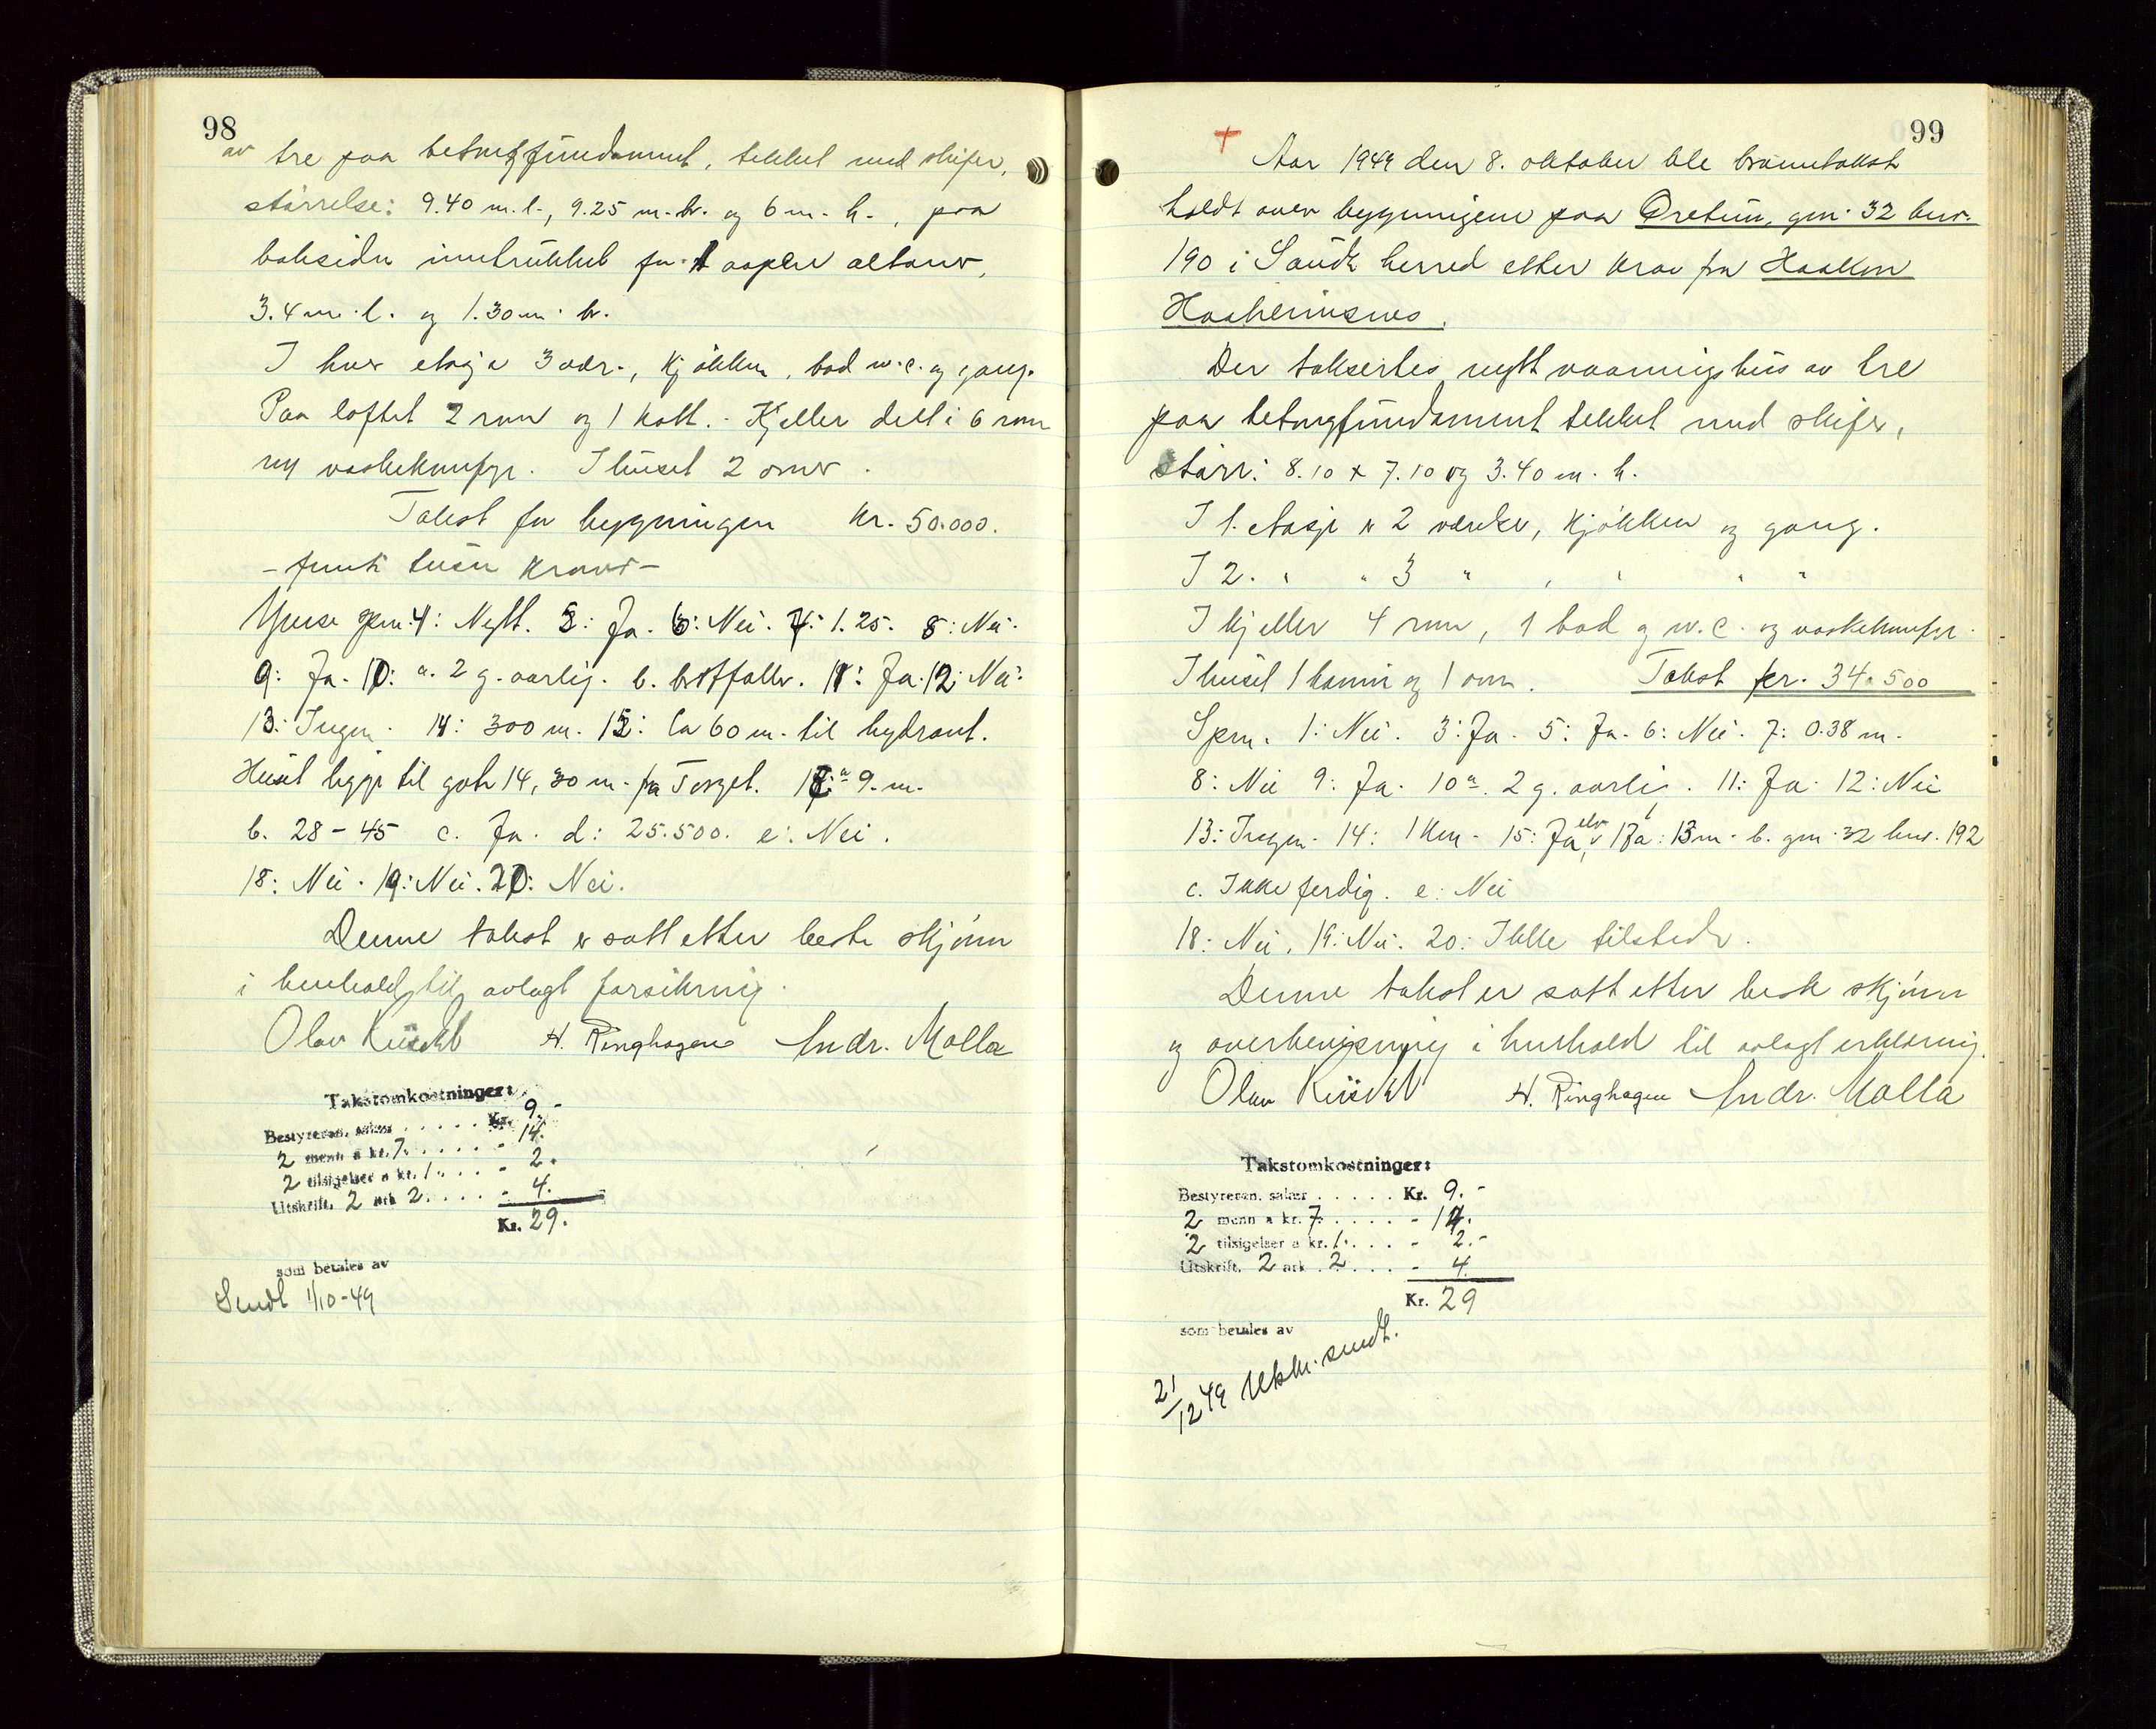 98
av tre paa betongfundament, tekket med skifer,
størrelse: 9.40 m. l., 9.25 m. br. og 6 m. h., paa
baksiden inntrukket for 1 aapen altaner,
3.4 m. l. og 1.30 m. br.
I hver etasje 3 vær., kjøkken, bad w.c. og gang.
Paa loftet 2 rum og 1 kott. - Kjeller delt i 6 rom
ny vaskekumfyr. I huset 2 ovner.
Takst for bygningen kr. 50.000.
- femti tusen kroner -
Ymse spm. 4: Nytt. 5: Ja. 6: Nei. 7: 1.25. 8: Nei.
9: Ja. 10: a. 2 g. aarlig. b. bortfaller. 11: Ja. 12: Nei.
13: Ingen. 14: 300 m. 15: Ca 60 m. til hydrant.
Huset ligger til gate 14, 30 m. fra Torget. 17: a 9. m.
b. 28 - 45 c. Ja. d: 25.500. e: Nei.
18: Nei. 19: Nei. 20: Nei.
Denne takst er satt etter beste skjønn
i henhold til avlagt forsikring.
Olav H. Ringhagen Andr. Molla
Takstomkostninger:
Bestyreren, salær . . . . . Kr. 9.-
2 menn a kr. 7. . . . . - 14.
2 tilsigelser a kr. 1. . . . - 2.
Utskrift, 2 ark 2. . . . - 4.
Kr. 29.
som betales av
Sendt 1/10-49
99
+ Aar 1949 den 8. oktober ble branntakst
holdt over bygningene paa Øretun, gnr. 32 bnr.
190 i Saude herred etter krav fra Haakon

Der takseertes nytt vaaningshus av tre
paa betongfundament tekket med skifer,
størr: 8.10 x 7.10 og 3.40 m. h.
I 1. etasje er 2 værelser, kjøkken og gang.
I 2. " " 3 " , " " "
I kjeller 4 rum, 1 bad og w.c. og vaskekumfyr.
I huset 1 kamin og 1 ovn. Takst kr. 34.500
Spm. 1: Nei. 3: Ja. 5: Ja. 6: Nei. 7: 0.38 m.
8: Nei 9: Ja. 10 a. 2 g. aarlig. 11: Ja. 12: Nei
13: Ingen. 14: 1 km. 15: Ja, elv 17a: 13 m. b. gnr. 32 bnr. 192
c. Ikke ferdig. e: Nei
18: Nei. 19: Nei. 20: Ikke tilstede.
Denne takst er satt etter beste skjønn
og overbevisning i henhold til avlagt erklæring.
Olav H. Ringhagen Andr. Molla
Takstomkostninger:
Bestyreren, salær . . . . . Kr. 9.-
2 menn a kr. 7. . . . . - 14.
2 tilsigelser a kr. 1. . . . - 2.-
Utskrift, 2 ark . 2 . . . - 4.
Kr. 29
som betales av
21/12 49 Utskr. sendt.